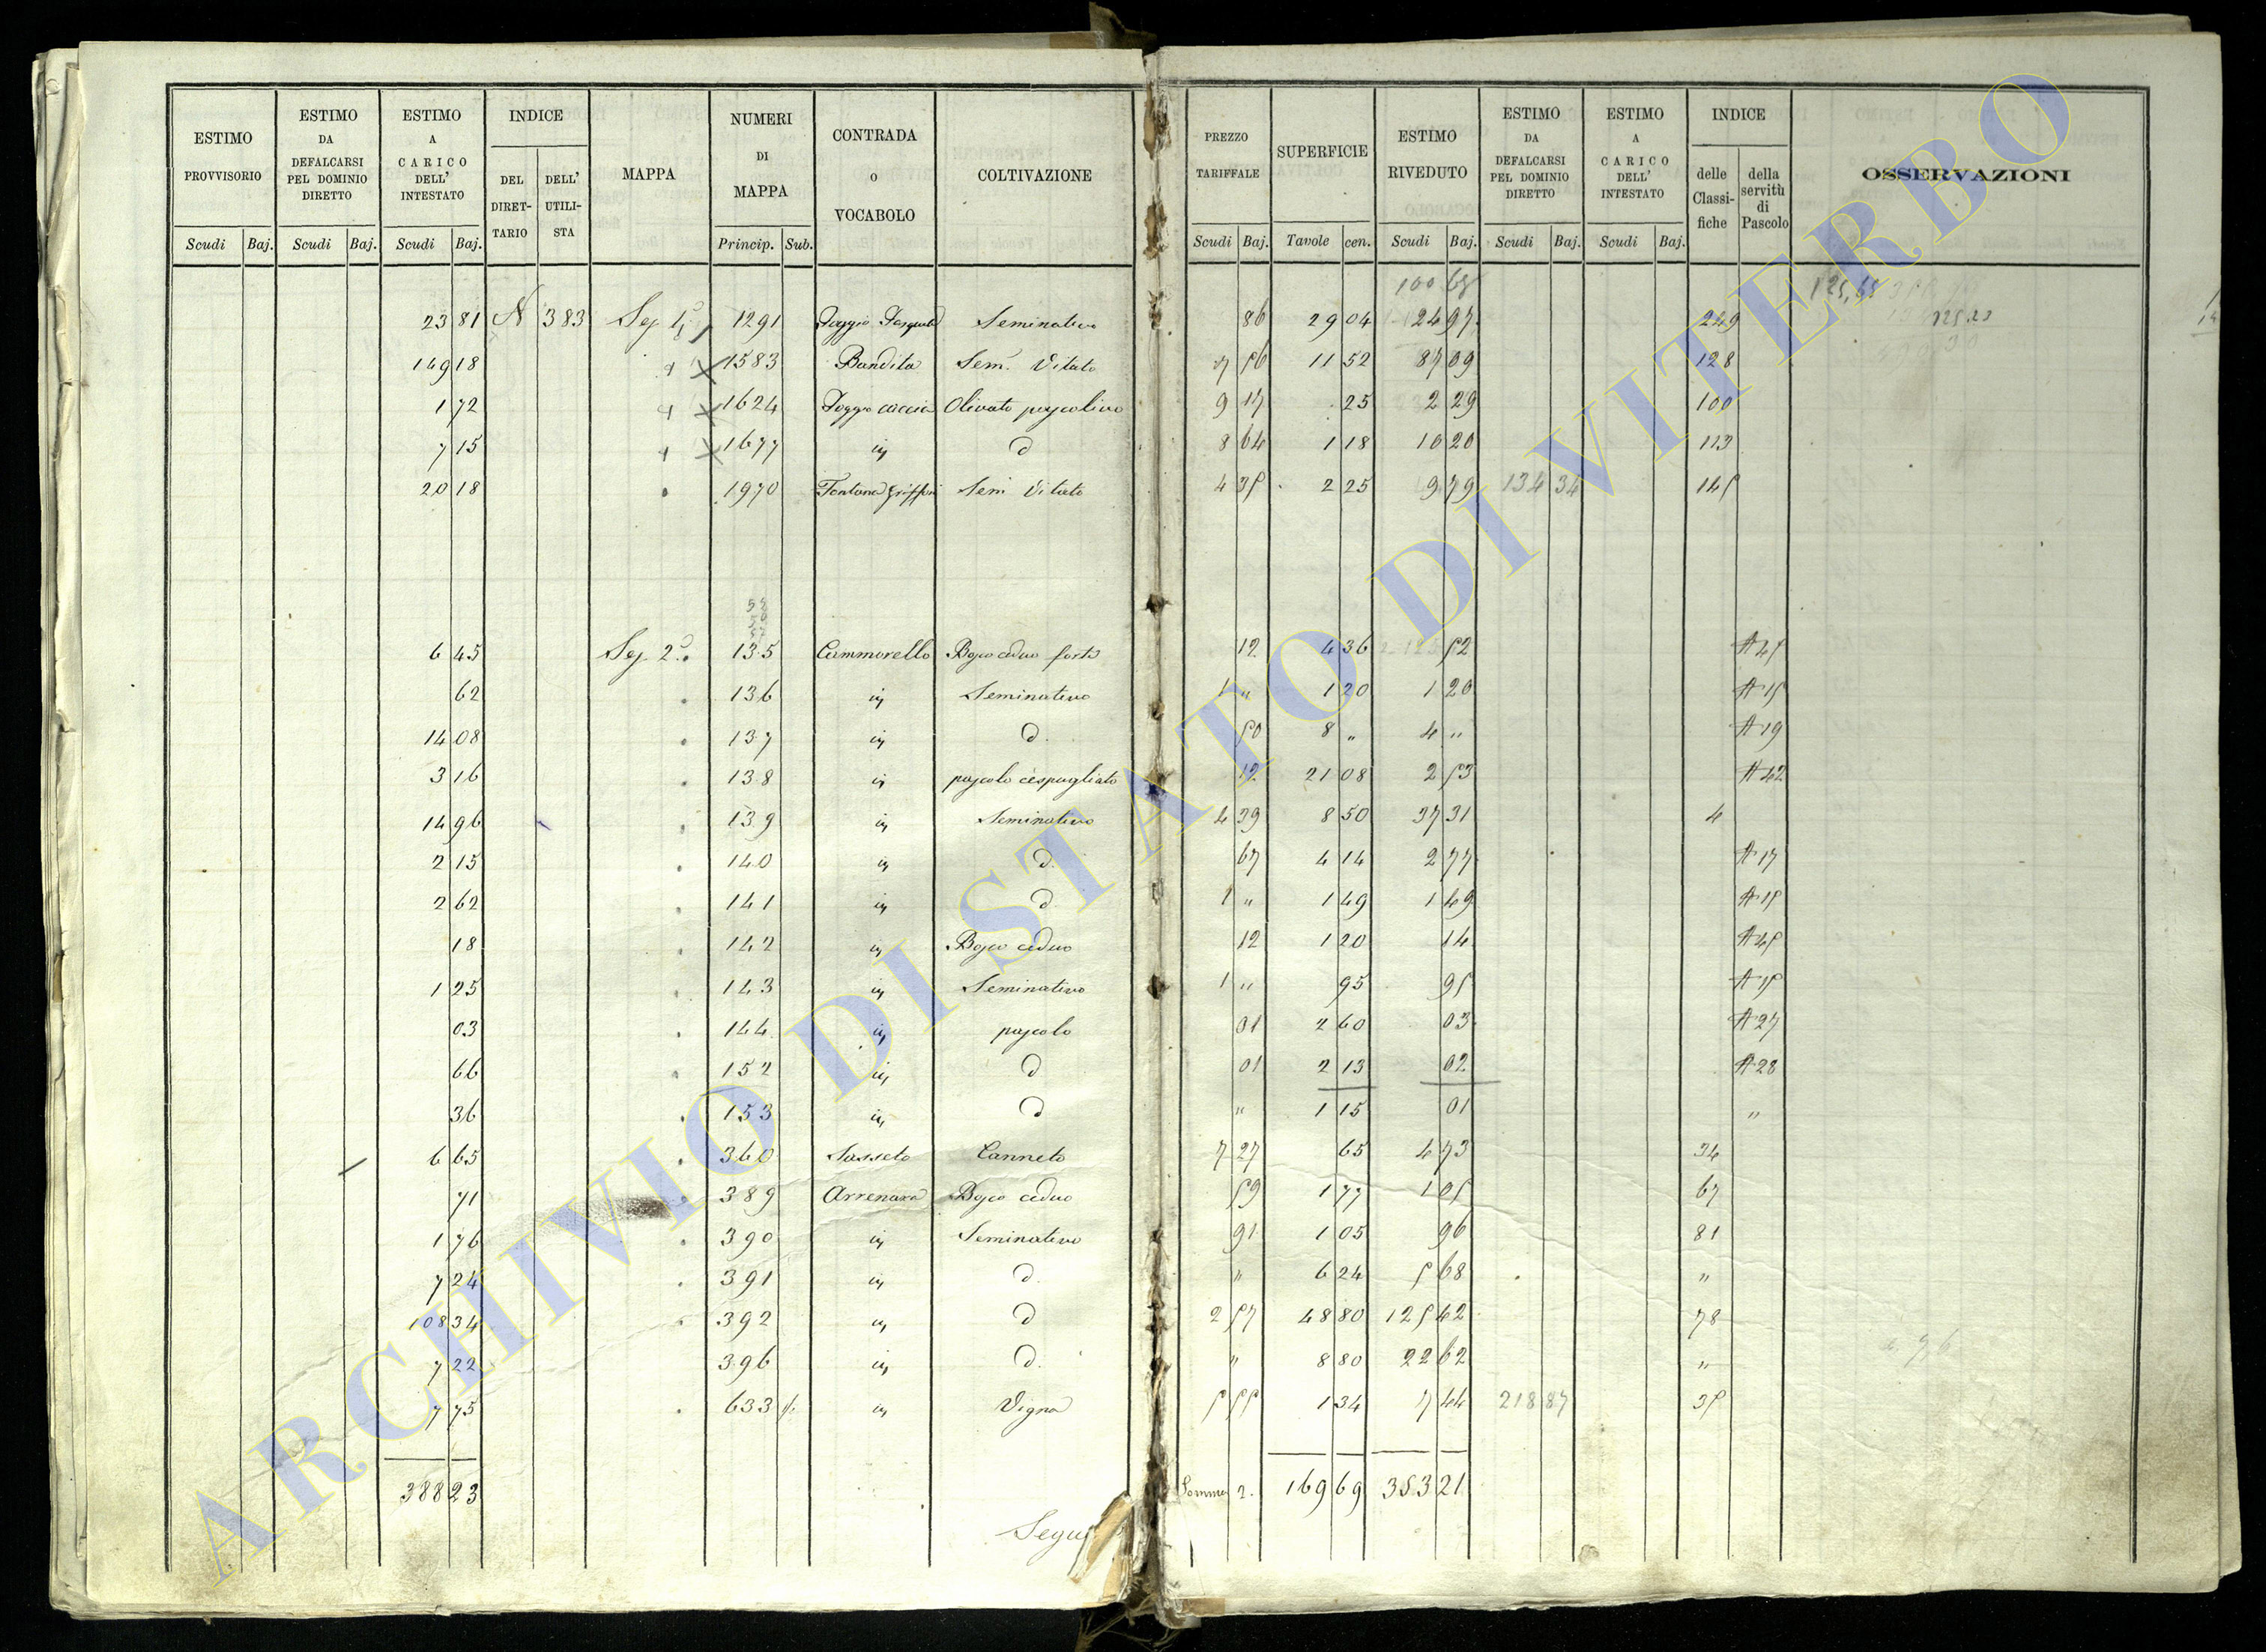 ESTIMO PROVVISORIO Scudi Baj.
ESTIMO DA DEFALCARSI PEL DOMINIO DIRETTO Scudi Baj.
ESTIMO A CARICO DELL' INTESTATO Scudi Baj.
INDICE DEL DIRET- TARIO DELL' UTILI- STA
MAPPA
NUMERI DI MAPPA Princip. Sub.
CONTRADA o VOCABOLO
COLTIVAZIONE
PREZZO TARIFFALE Scudi Baj.
SUPERFICIE Tavole cen.
ESTIMO RIVEDUTO Scudi Baj.
ESTIMO DA DEFALCARSI PEL DOMINIO DIRETTO Scudi Baj.
ESTIMO A CARICO DELL' INTESTATO Scudi Baj.
INDICE delle Classi- fiche della servitù di Pascolo
OSSERVAZIONI
23 81 N 383 Sez 1ª 1291 Poggio Seminativo 86 29 04 24 97 249
149 18 1583 Bandita Sem. Vitato 7 56 11 52 87 09 128
1 72 1624 Poggio caccia Olivato pascolivo 9 17 25 2 29 100
7 15 1677 in d 8 64 1 18 10 20 113
20 18 1970 Fontana Griffoni Sem Vitato 4 35 2 25 9 79 134 34 145
6 45 Sez. 2ª 135 Cammorello Bosco ceduo forte 12 4 36 52 A 45
62 136 in Seminativo 1 " 1 20 1 20 A 15
14 08 137 in d. 50 8 " 4 " A 19
3 16 138 in pascolo cespugliato 12 21 08 2 53 A 42
14 96 139 in Seminativo 4 39 8 50 37 31 4
2 15 140 in d. 67 4 14 2 77 A 17
2 62 141 in d 1 " 1 49 1 49 A 15
18 142 in Bosco ceduo 12 1 20 14 A 45
1 25 143 in Seminativo 1 " 95 95 A 15
03 144 in pascolo 01 2 60 03 A 27
66 152 in d 01 2 13 02 A 28
36 153 in d " 1 15 01 "
6 65 360 Sasseto Canneto 7 27 65 4 73 34
71 389 Arrenara Bosco ceduo 59 1 77 1 05 67
1 76 390 in Seminativo 91 1 05 96 81
7 24 391 in d. " 6 24 5 68 "
108 34 392 in d 2 57 48 80 125 42 78
7 22 396 in d. " 8 80 22 62 "
7 75 633 in Vigna 5 55 1 34 7 44 218 87 35
388 23 Somma 2. 169 69 353 21
Segu
ARCHIVIO DI STATO DI VITERBO